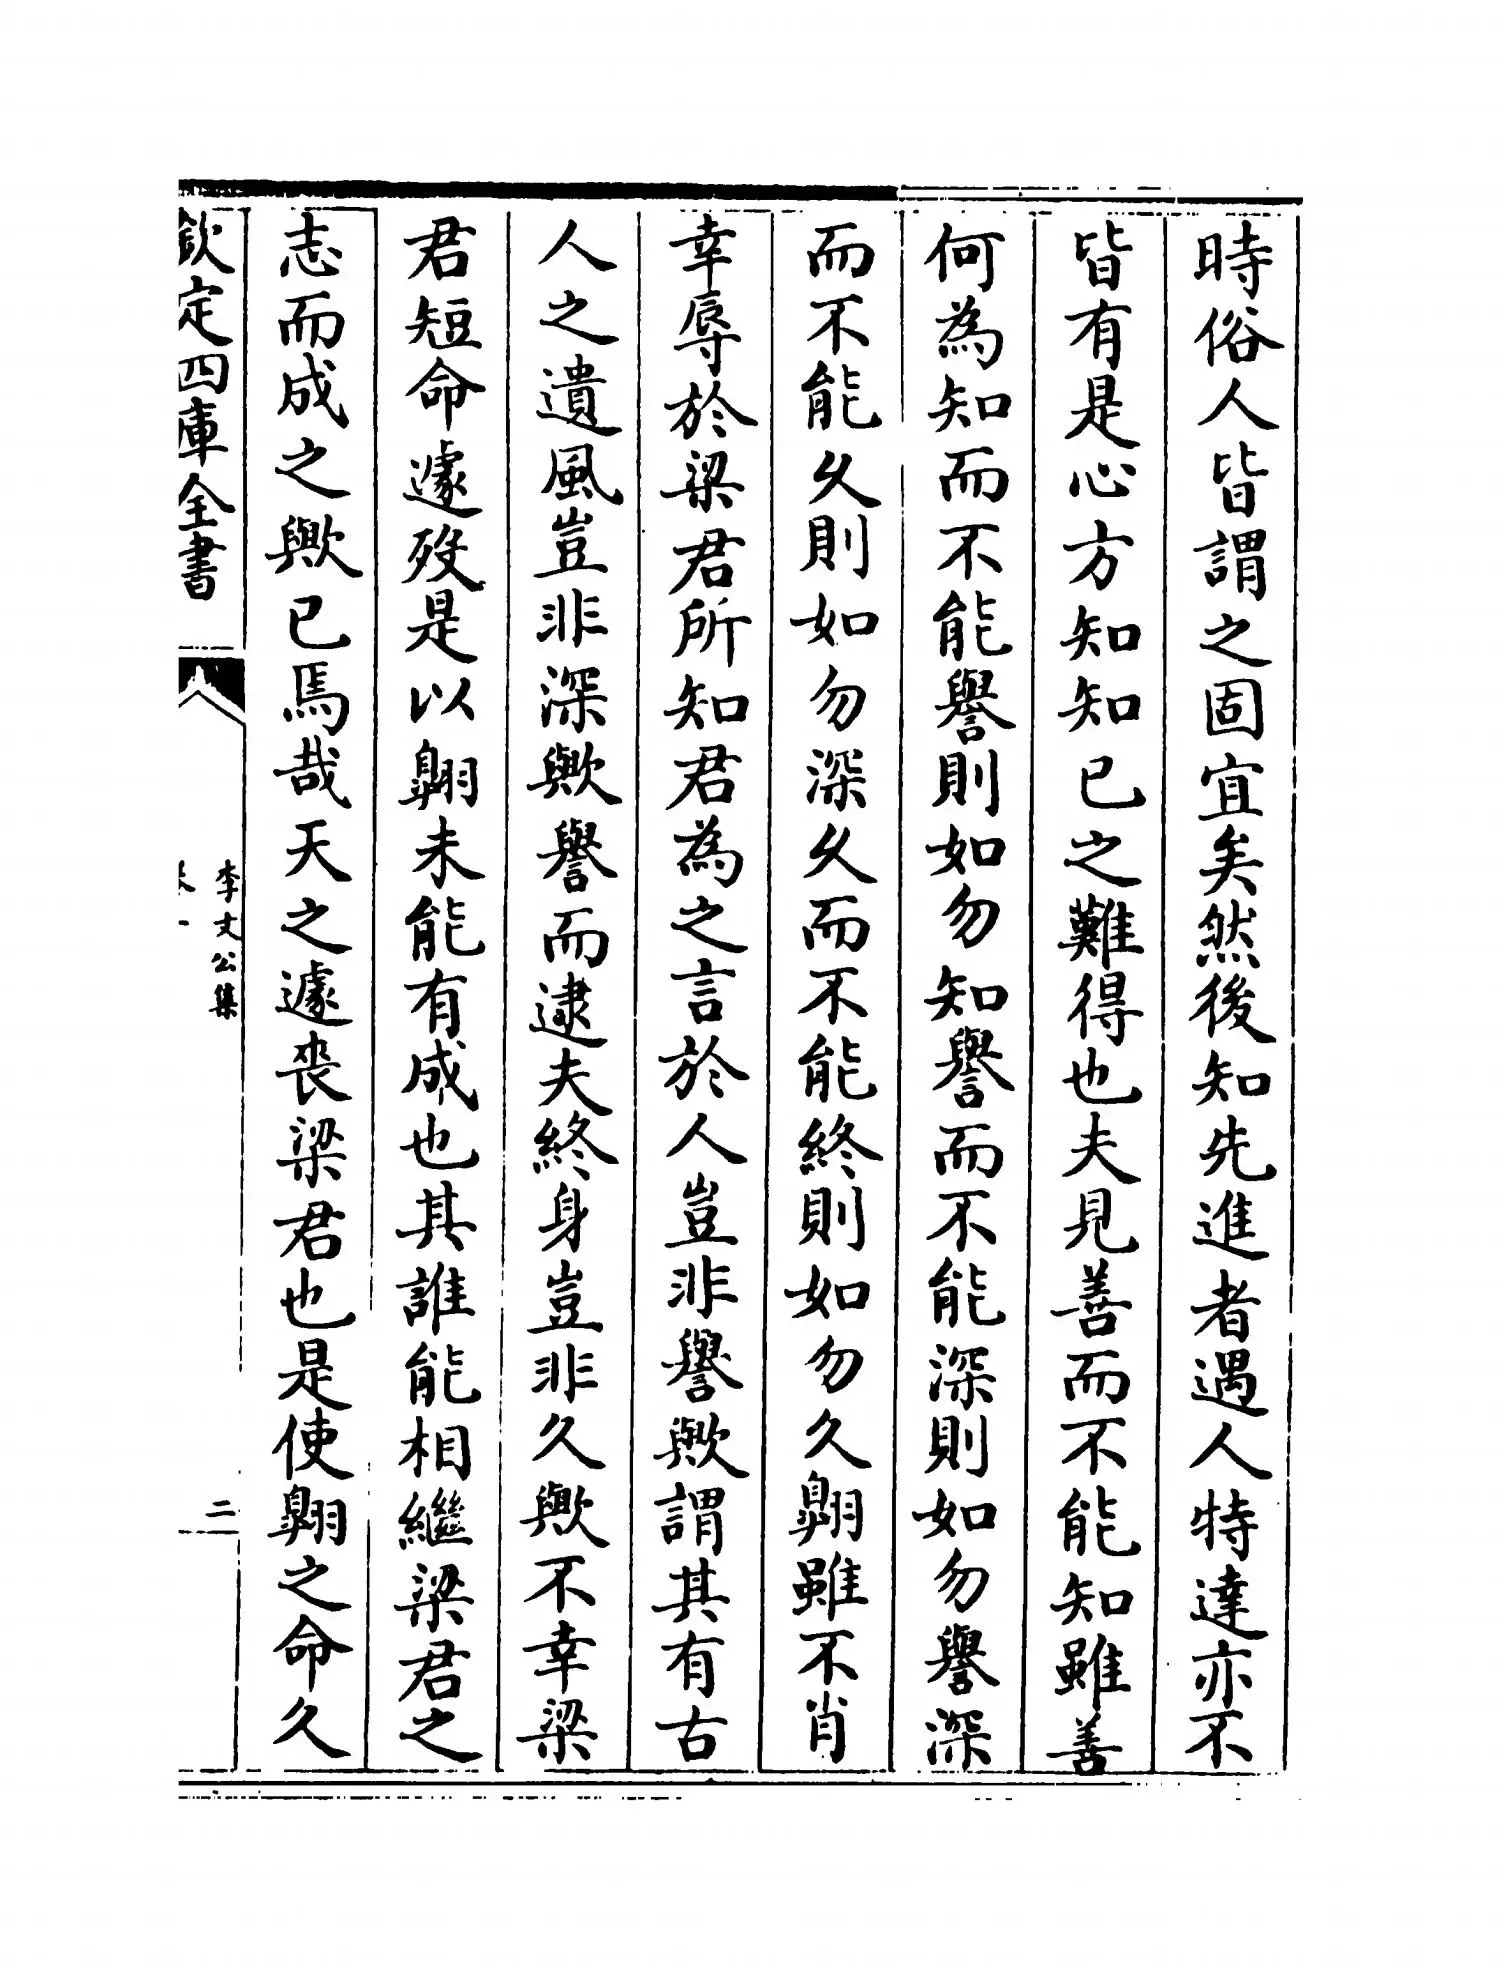 時俗人皆謂之固宜矣然後知先進者遇人特達亦不
皆有是心方知知已之難得也夫見善而不能知雖善
何為知而不能譽則如勿知譽而不能深則如勿譽深
而不能乆則如勿深乆而不能終則如勿久翺雖不肖
幸辱於梁君所知君為之言於人豈非譽歟謂其有古
人之遺風豈非深歟譽而逮夫終身豈非久歟不幸梁
君短命遽殁是以翺未能有成也其誰能相繼梁君之
志而成之歟已焉哉天之遽丧梁君也是使翺之命久
欽定四庫全書
李文公集
二